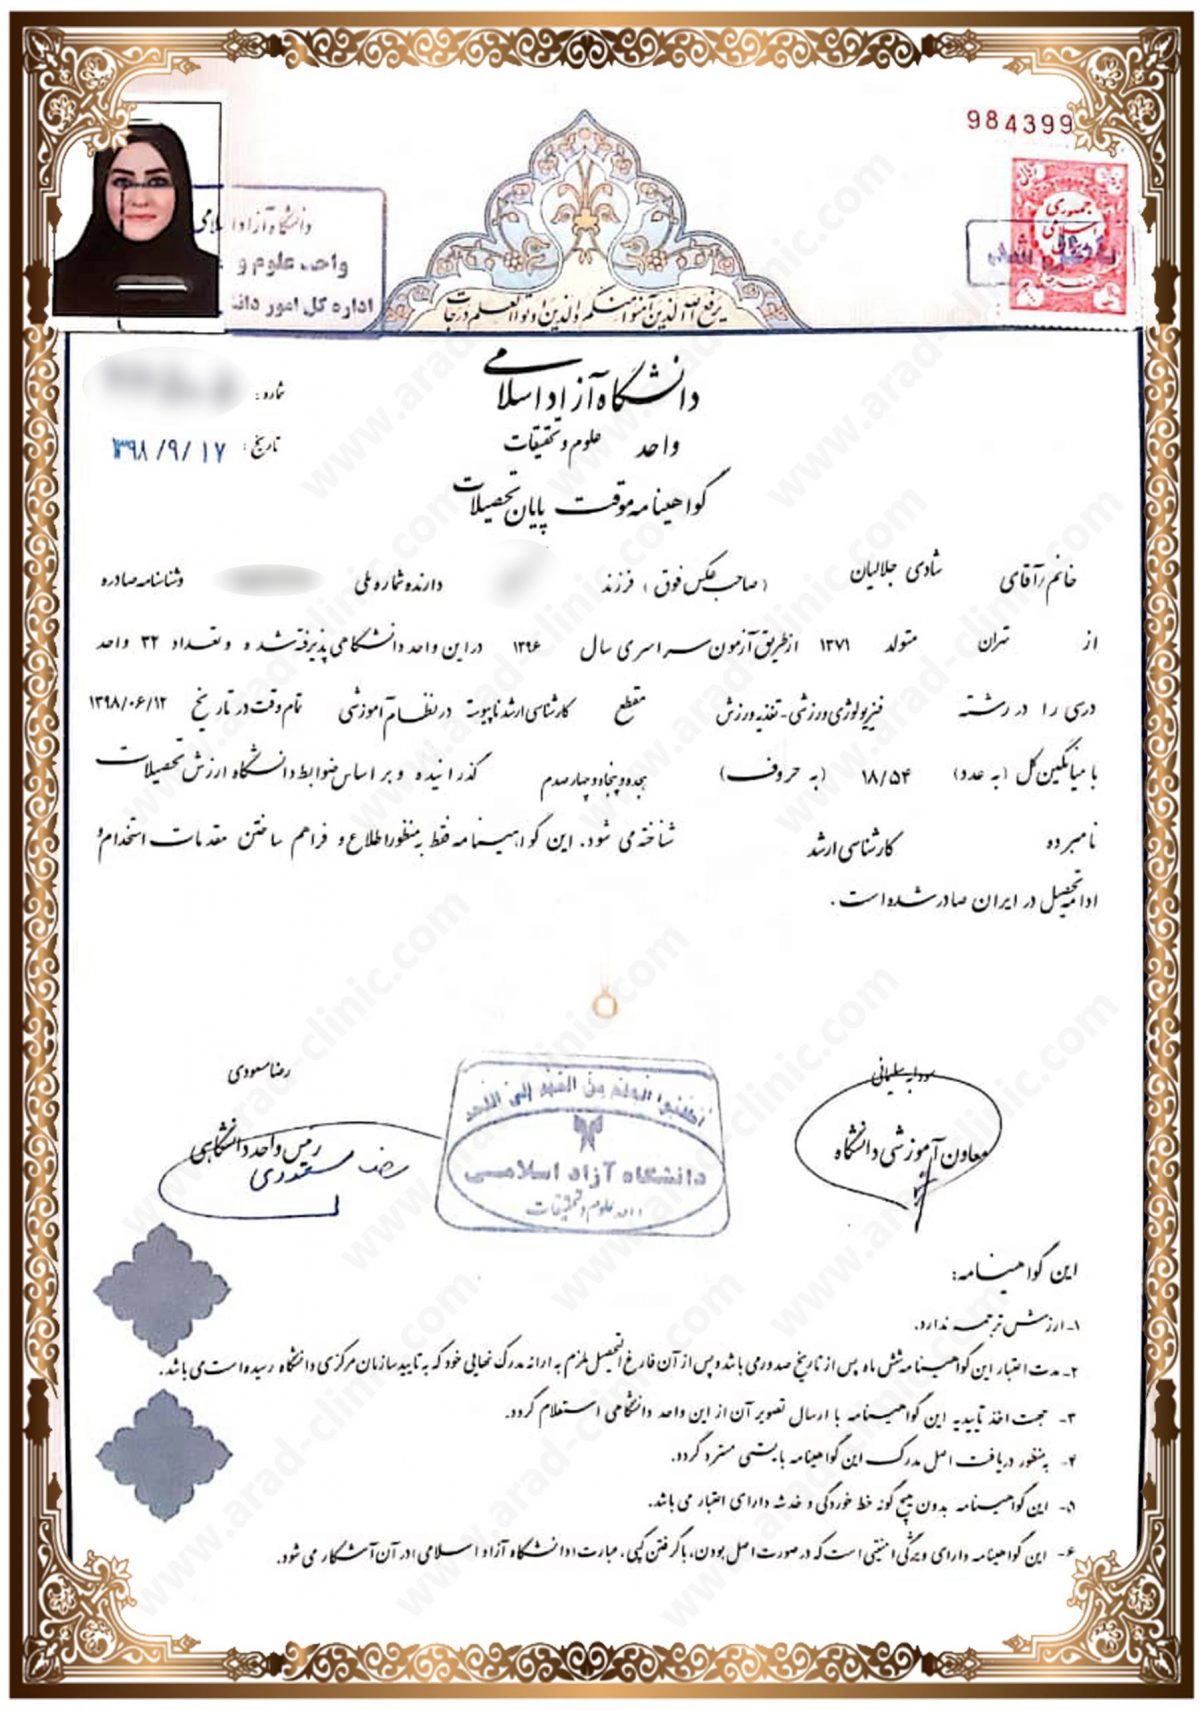 984399
جمهوری
اسلامی
دانشگاه آزاد اسلامی
واحد علوم و
اداره کل امور
یرفع الله الذین آمنوا منکم والذین اوتوا العلم درجات
دانشگاه آزاد اسلامی
واحد علوم و تحقیقات
گواهینامه موقت پایان تحصیلات
شماره:
تاریخ: ۱۳۹۸/۹/۱۷
خانم/آقای شادی جلالیان (صاحب عکس فوق) فرزند دارنده شماره ملی و شناسنامه صادره
از تهران متولد ۱۳۷۱ از طریق آزمون سراسری سال ۱۳۹۶ در این واحد دانشگاهی پذیرفته شده و تعداد ۳۲ واحد
درسی را در رشته فیزیولوژی ورزشی - تغذیه ورزش مقطع کارشناسی ارشد ناپیوسته در نظام آموزشی تمام وقت در تاریخ ۱۳۹۸/۰۶/۱۲
با میانگین کل (به عدد) ۱۸/۵۴ (به حروف) هجده و پنجاه و چهار صدم گذرانیده و بر اساس ضوابط دانشگاه ارزش تحصیلات
نامبرده کارشناسی ارشد شناخته می شود. این گواهینامه فقط به منظور اطلاع و فراهم ساختن مقدمات استخدام و
ادامه تحصیل در ایران صادر شده است.
سودابه سلیمانی
معاون آموزشی دانشگاه
اطلبوا العلم من المهد إلی اللحد
دانشگاه آزاد اسلامی
واحد علوم و تحقیقات
رضا مسعودی
رئیس واحد دانشگاهی
این گواهینامه:
۱- ارزش ترجمه ندارد.
۲- مدت اعتبار این گواهینامه شش ماه پس از تاریخ صدور می باشد و پس از آن فارغ التحصیل ملزم به ارائه مدرک نهایی خود که به تایید سازمان مرکزی دانشگاه رسیده است می باشد.
۳- جهت اخذ تاییدیه این گواهینامه با ارسال تصویر آن از این واحد دانشگاهی استعلام گردد.
۴- به منظور دریافت اصل مدرک این گواهینامه بایستی مسترد گردد.
۵- این گواهینامه بدون هیچ گونه خط خوردگی و خدشه دارای اعتبار می باشد.
۶- این گواهینامه دارای ویژگی امنیتی است که در صورت اصل بودن، با گرفتن کپی، عبارت دانشگاه آزاد اسلامی در آن آشکار می شود.
www.arad-clinic.com